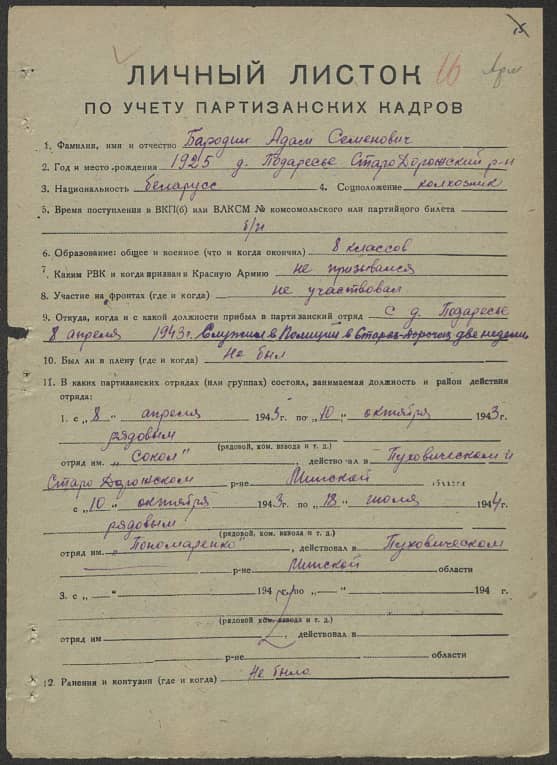 15
ЛИЧНЫЙ ЛИСТОК 16
ПО УЧЕТУ ПАРТИЗАНСКИХ КАДРОВ
1. Фамилия, имя и отчество Бародич Адам Семенович
2. Год и место рождения 1925 д. Подаресье Старо Дорожский р-н
3. Национальность беларусс 4. Соцположение колхозник
5. Время поступления в ВКП(б) или ВЛКСМ № комсомольского или партийного билета
б/п
6. Образование: общее и военное (что и когда окончил) 8 классов
7. Каким РВК и когда призван в Красную Армию не призывался
8. Участие на фронтах (где и когда) не участвовал
9. Откуда, и с какой должности прибыл в партизанский отряд с д. Подаресье
8 апреля 1943г. Служил в Полиции в Старых-Дорогах две недели
10. Был ли в плену (где и когда) Не был
11. В каких партизанских отрядах (или группах) состоял, занимаемая должность и район действия
отряда:
1. с „ 8 “ апреля 1943г. по „ 10 “ октября 1943г.
рядовым
(рядовой, ком. взвода и т. д.)
отряд им. „Сокол“, действовал в Пуховическом и
Старо Дорожском р-не Минской области
с „ 10 “ октября 1943г. по „ 18 “ июля 1944г.
рядовым
(рядовой, ком. взвода и т. д.)
отряд им. „Пономаренко“, действовал в Пуховическом
р-не Минской области
3. с „ — “ 194 г. по „ — “ 194 г.
(рядовой, ком. взвода и т. д.)
отряд им. , действовал в
р-не области
12. Ранения и контузии (где и когда) Не было